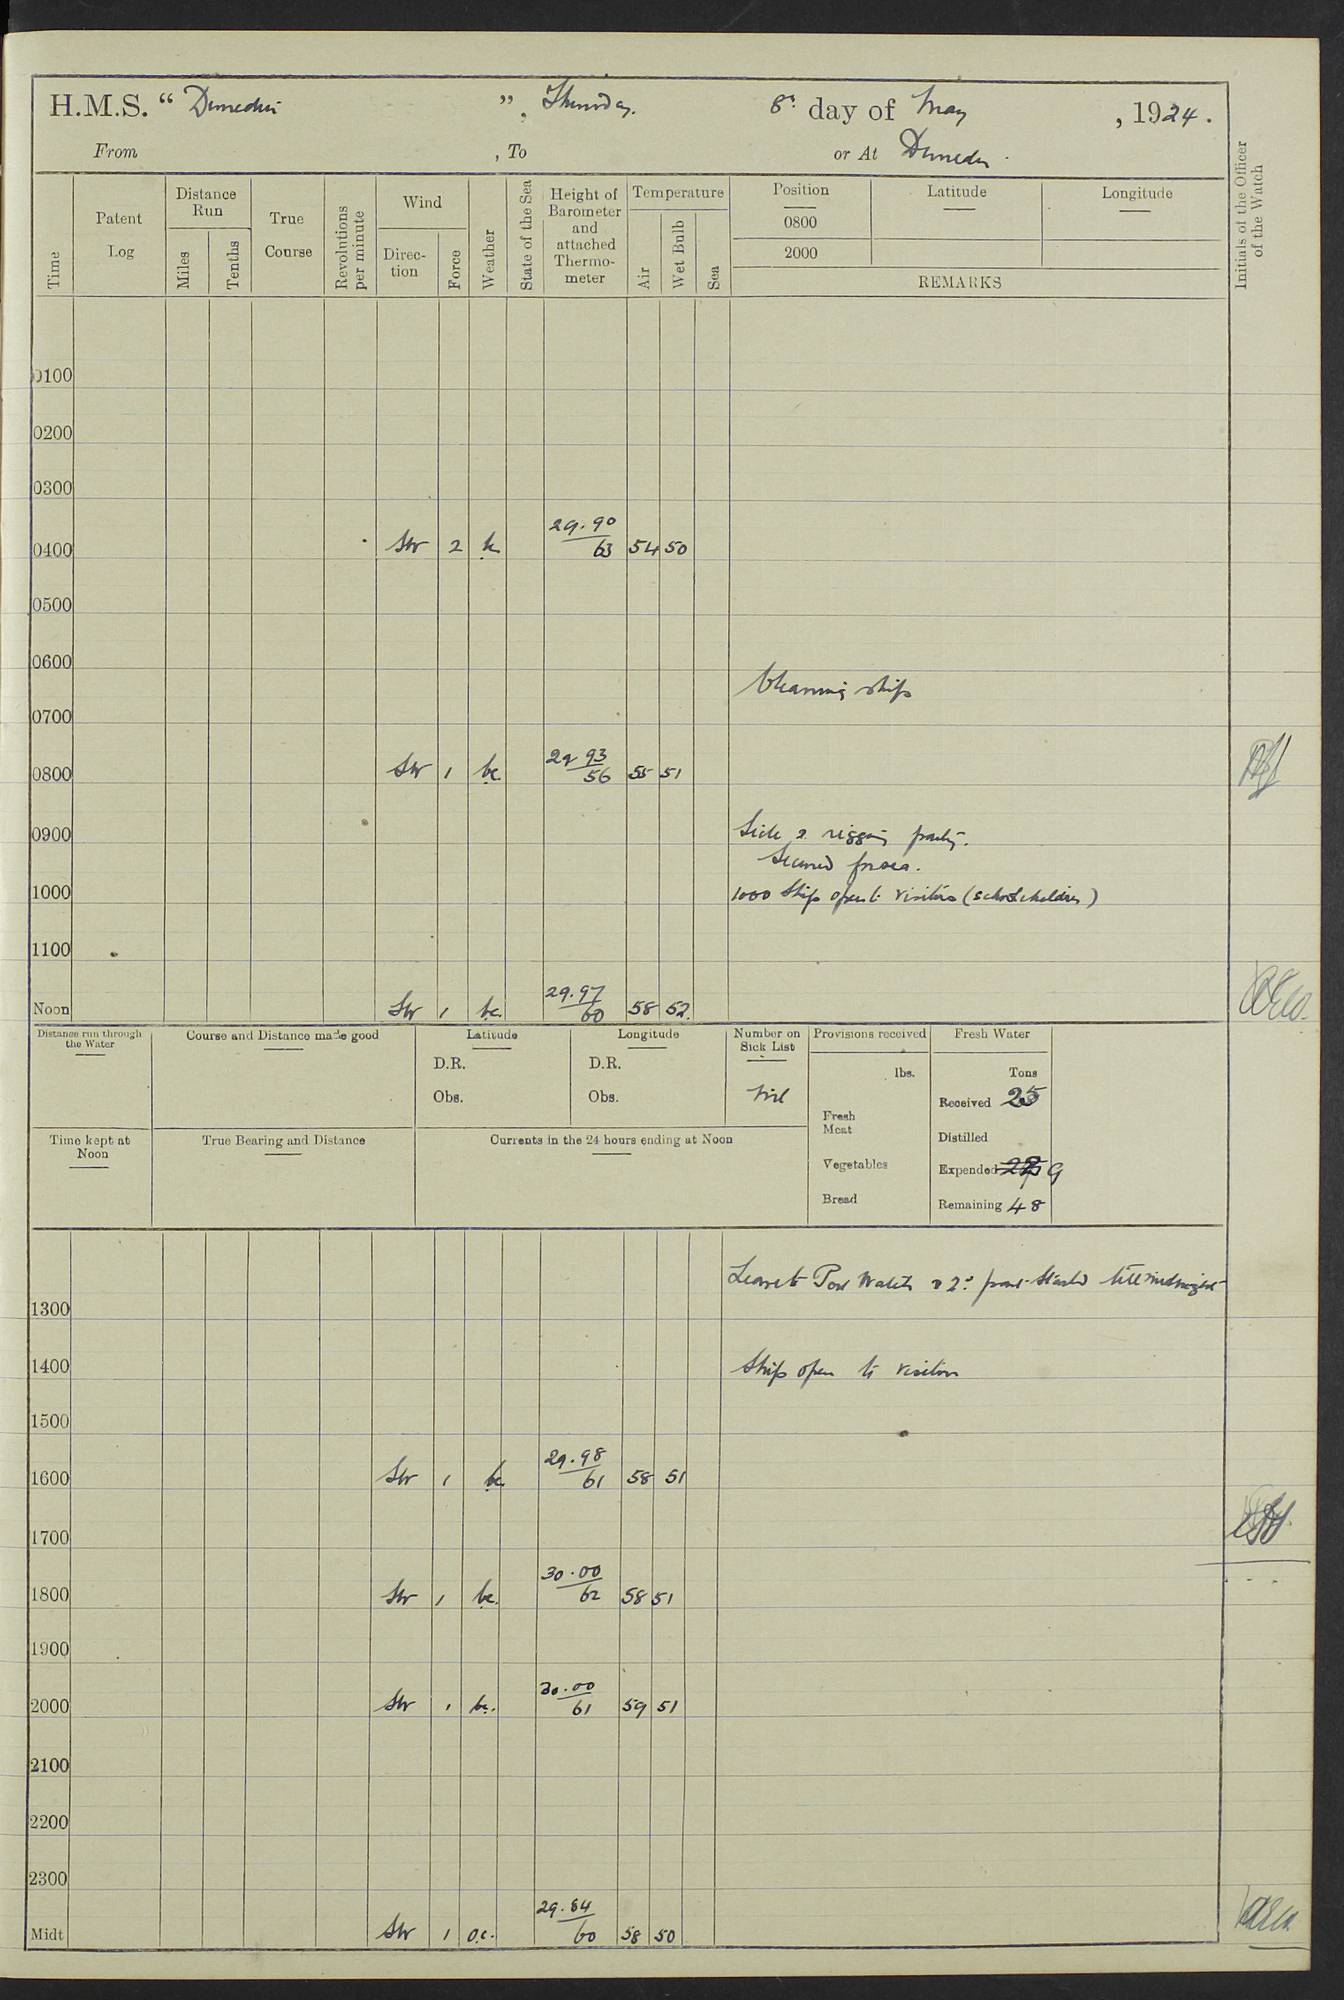 H.M.S. “ Dunedin ”, Thursday. 8th day of May, 1924.
From , To or At Dunedin.
Time
Patent Log
Distance Run
Miles
Tenths
True Course
Revolutions per minute
Wind
Direction
Force
Weather
State of the Sea
Height of Barometer and attached Thermometer
Temperature
Air
Wet Bulb
Sea
Position
0800
2000
Latitude
Longitude
REMARKS
Initials of the Officer of the Watch
0100
0200
0300
0400 SW 2 bc 29.90 63 54 50
0500
0600
Cleaning ship
0700
0800 SW 1 bc. 29 93 56 55 51
0900 Side & rigging party.
Secured
1000 1000 Ship open to visitors (schoolchildren)
1100
Noon SW 1 bc. 29.97 60 58 52.
Distance run through the Water
Course and Distance made good
Latitude
D.R.
Obs.
Longitude
D.R.
Obs.
Number on Sick List
Nil
Provisions received
lbs.
Fresh Meat
Vegetables
Bread
Fresh Water
Tons
Received 25
Distilled
Expended 29
Remaining 48
Time kept at Noon
True Bearing and Distance
Currents in the 24 hours ending at Noon
Leave to Port Watch & 2nd part Starbd till midnight
1300
1400 Ship open to visitors
1500
1600 SW 1 bc 29.98 61 58 51
1700
1800 SW 1 bc. 30.00 62 58 51
1900
2000 SW 1 bc. 30.00 61 59 51
2100
2200
2300
Midt SW 1 o.c. 29.84 60 58 50